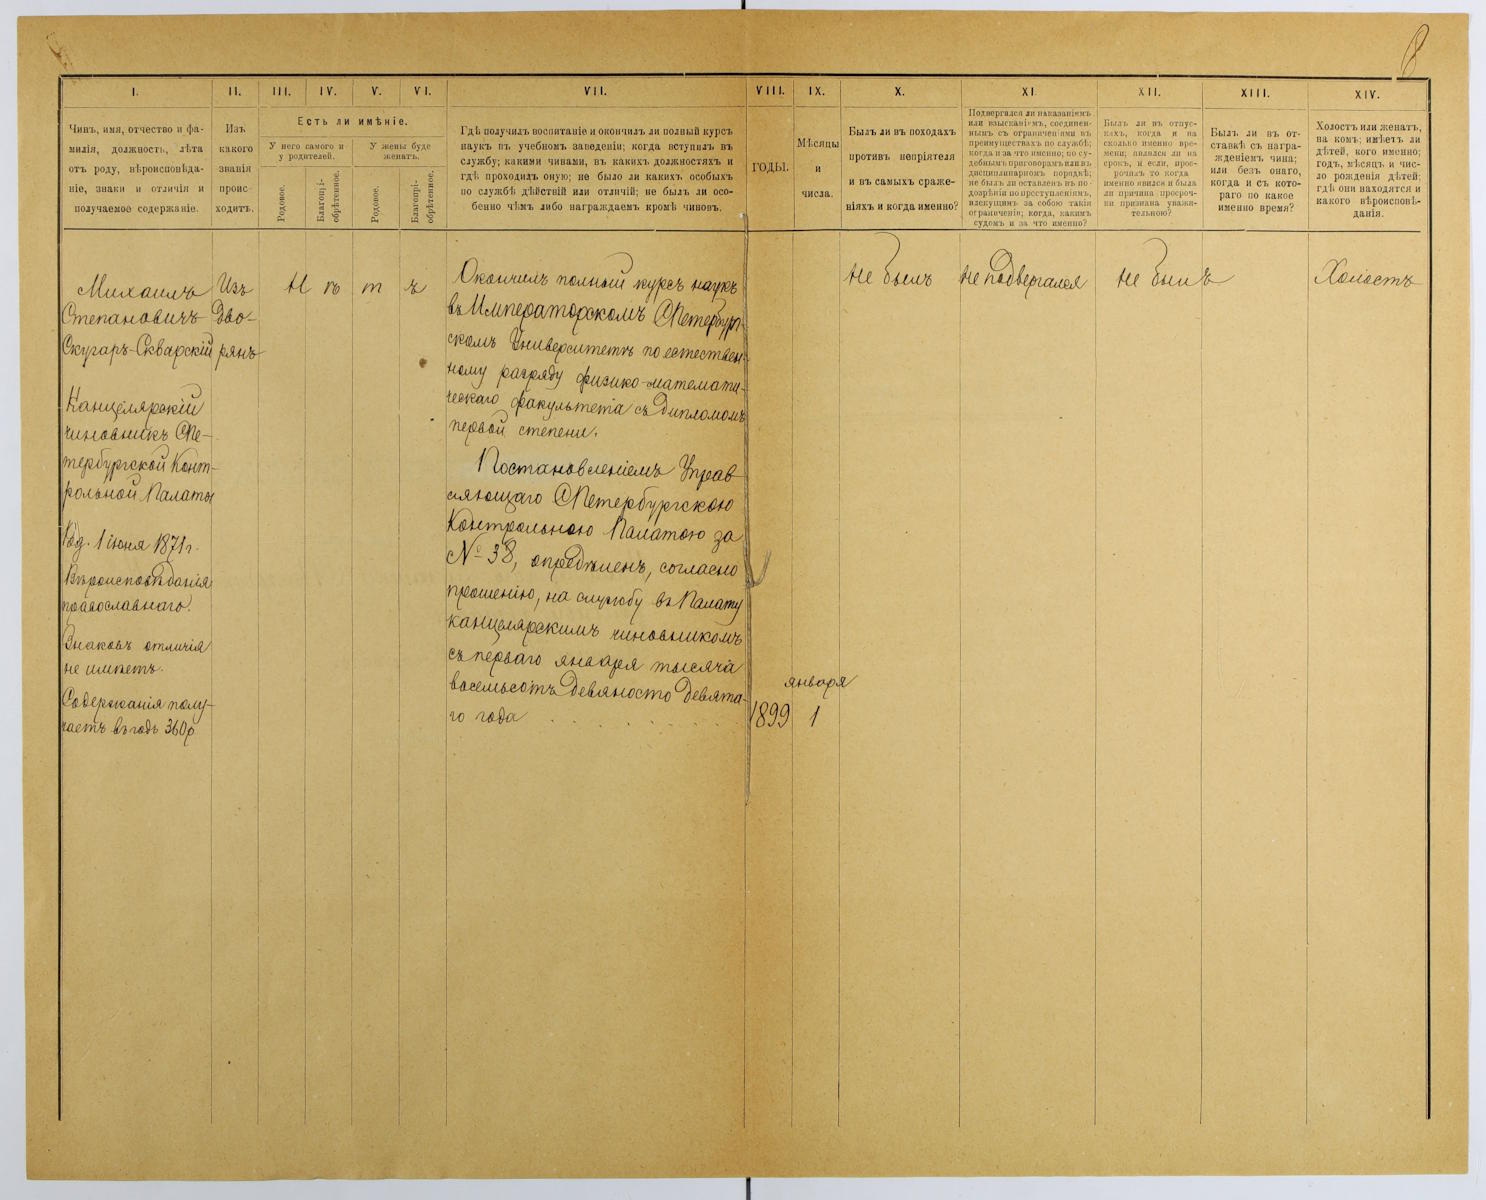 8
I.
II.
III.
IV.
V.
VI.
VII.
VIII.
IX.
X.
XI
XII.
XIII.
XIV.
Чинъ, имя, отчество и фа-
милія, должность, лѣта
отъ роду, вѣроисповѣда-
ніе, знаки и отличія и
получаемое содержаніе.
Изъ
какого
званія
проис-
ходитъ.
Есть ли имѣніе.
У него самого и
у родителей.
У жены буде
женатъ.
Родовое.
Благопрі-
обрѣтенное.
Родовое.
Благопрі-
обрѣтенное.
Гдѣ получилъ воспитаніе и окончилъ ли полный курсъ
наукъ въ учебномъ заведеніи; когда вступилъ въ
службу; какими чинами, въ какихъ должностяхъ и
гдѣ проходилъ оную; не было ли какихъ особыхъ
по службѣ дѣйствій или отличій; не былъ ли осо-
бенно чѣмъ либо награждаемъ кромѣ чиновъ.
ГОДЫ.
Мѣсяцы
и
числа.
Былъ ли въ походахъ
противъ непріятеля
и въ самыхъ сраже-
ніяхъ и когда именно?
Подвергался ли наказаніямъ
или взысканіямъ, соединен-
нымъ съ ограниченіями въ
преимуществахъ по службѣ;
когда и за что именно; по су-
дебнымъ приговорамъ или въ
дисциплинарномъ порядкѣ;
не былъ ли оставленъ въ по-
дозрѣніи по преступленіямъ,
влекущимъ за собою такія
ограниченія; когда, какимъ
судомъ и за что именно?
Былъ ли въ отпус-
кахъ, когда и на
сколько именно вре-
мени; явился ли на
срокъ, и если, прос-
рочилъ то когда
именно явился и была
ли причина просроч-
ки признана уважи-
тельною?
Былъ ли въ от-
ставкѣ съ награ-
жденіемъ чина;
или безъ онаго,
когда и съ кото-
раго по какое
именно время?
Холостъ или женатъ,
на комъ; имѣетъ ли
дѣтей, кого именно;
годъ, мѣсяцъ и чис-
ло рожденія дѣтей;
гдѣ они находятся и
какого вѣроисповѣ-
данія.
Михаилъ
Степановичъ
Скугаръ-Скварскій
Канцелярскій
чиновникъ СПе-
тербургской Конт-
рольной Палаты
Род. 1 іюня 1871 г.
Вѣроисповѣданія
православнаго.
Знаковъ отличія
не имѣетъ.
Содержанія полу-
чаетъ въ годъ 360 р
Изъ
Дво-
рянъ
Н ѣ т ъ
Окончилъ полный курсъ наукъ
въ Императорскомъ СПетербург-
скомъ Университетѣ по естествен-
ному разряду физико-математи-
ческаго факультета съ дипломомъ
первой степени.
Постановленіемъ Управ-
ляющаго СПетербургскою
Контрольною Палатою за
№ 38, опредѣленъ, согласно
прошенію, на службу въ Палату
канцелярскимъ чиновникомъ
съ перваго января тысяча
восемьсотъ девяносто девята-
го года . . . . . . .
1899
января
1
Не былъ
Не подвергался
Не былъ
Холостъ